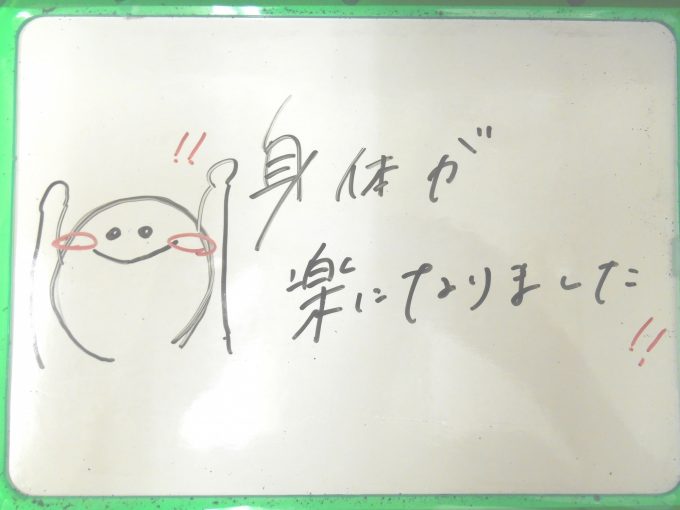 !!
身体が
楽になりました
!!